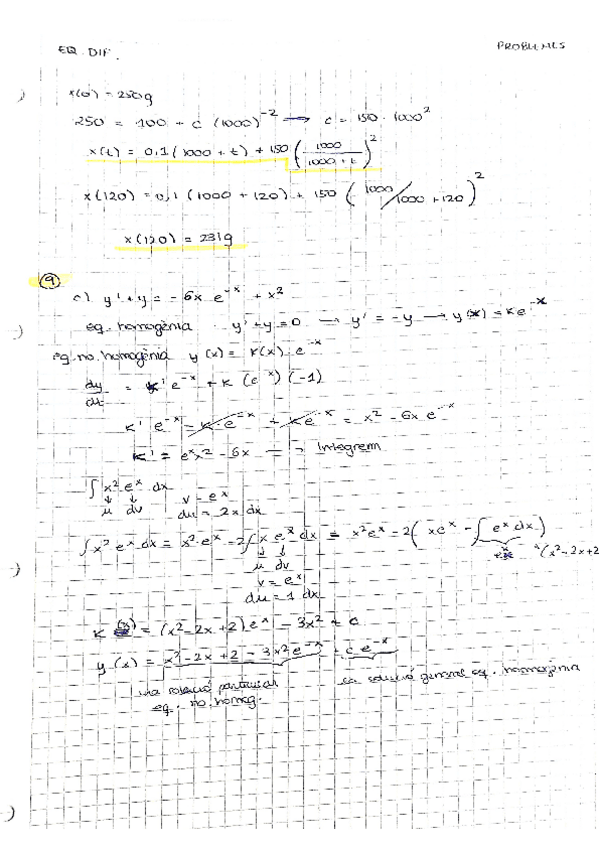 EQ. DIF.
PROBLEMES
x(0) = 250g
250 = 100 + c (1000)^-2 → c = 150 · 1000^2
x(t) = 0,1 (1000 + t) + 150 (1000/1000 + t)^2
x(120) = 0,1 (1000 + 120) + 150 (1000/1000 + 120)^2
x(120) = 231g
9
c) y' + y = -6x e^-x + x^2
eq. homogènia y' + y = 0 → y' = -y → y(x) = K e^-x
eq. no. homogènia y(x) = K(x) · e^-x
dy/dt = K' e^-x + K (e^-x) (-1)
K' e^-x - K · e^-x + K e^-x = x^2 - 6x e^-x
K' = e^x x^2 - 6x → Integrem
∫ x^2 e^x dx
u dv
v = e^x
du = 2x dx
∫ x^2 e^x dx = x^2 · e^x - 2 ∫ x e^x dx = x^2 e^x - 2 ( x e^x - ∫ e^x dx )
e^x (x^2 - 2x + 2
u dv
v = e^x
du = 1 dx
K (x) = (x^2 - 2x + 2) e^x - 3x^2 + c
y (x) = x^2 - 2x + 2 - 3x^2 e^-x + c e^-x
una solució particular
eq. no. homog.
la solució general eq. homogènia